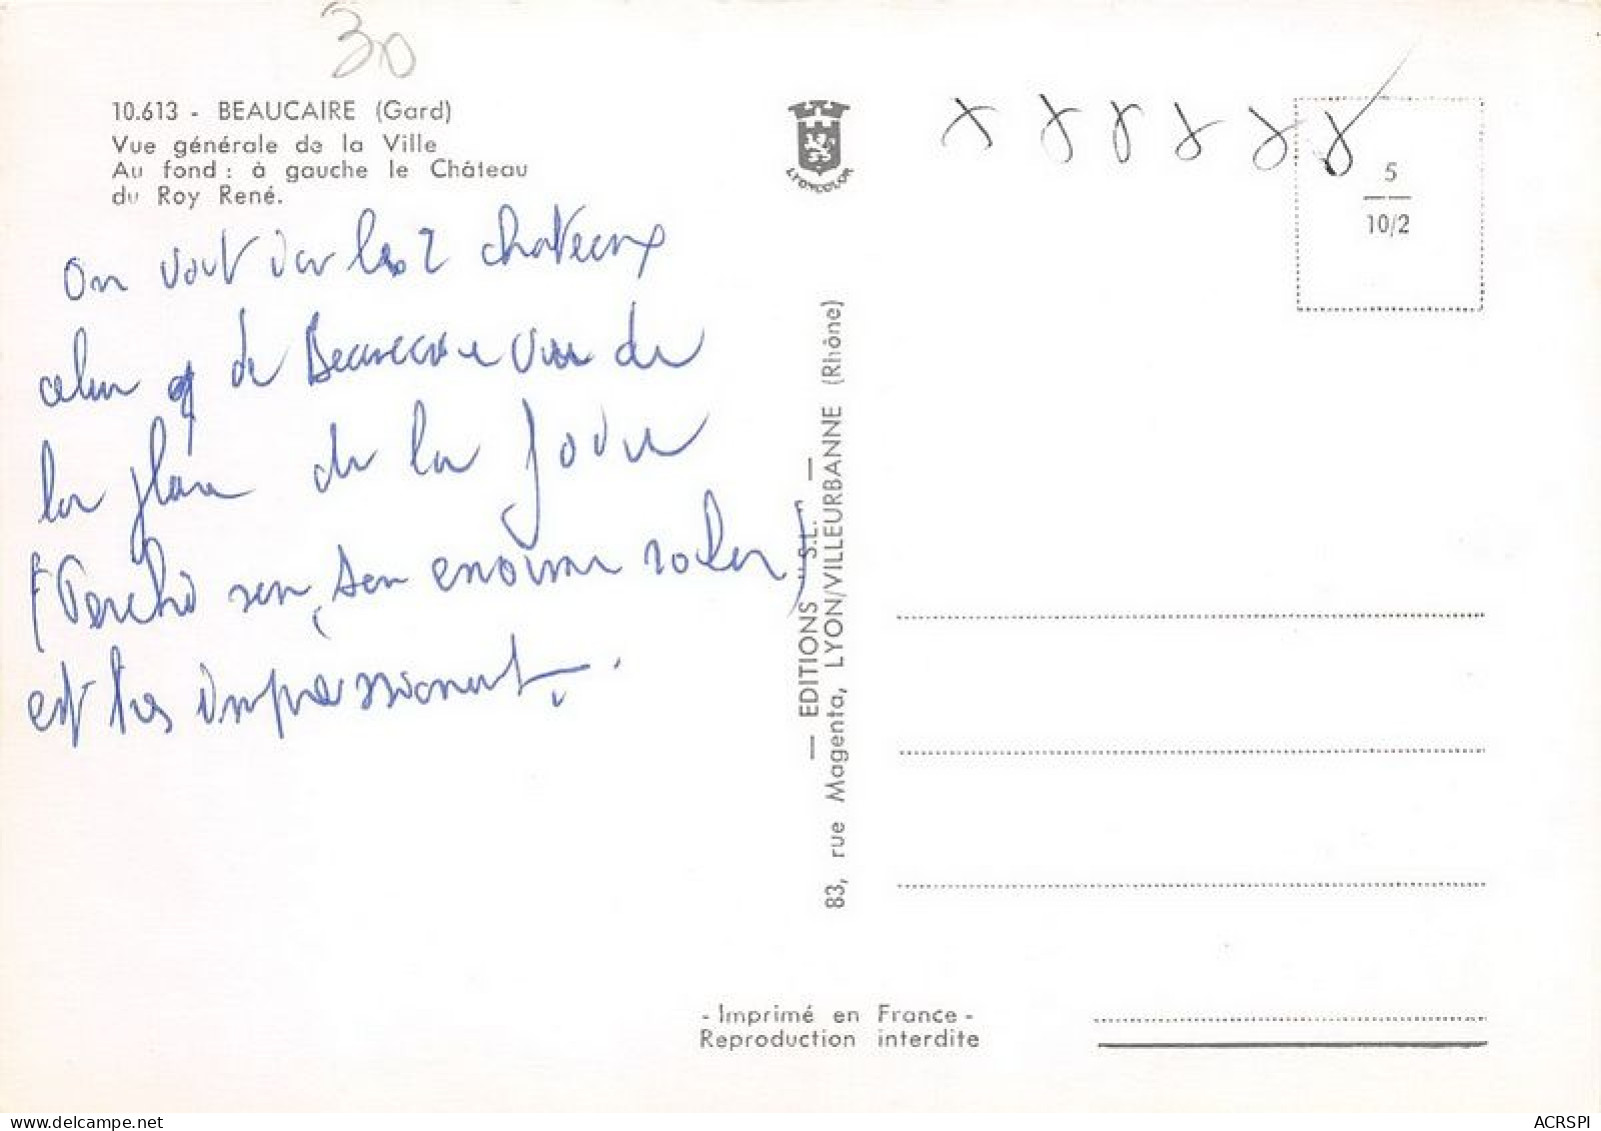 30
10.613 - BEAUCAIRE (Gard)
Vue générale de la Ville
Au fond : à gauche le Château
du Roy René.
On voit ici les 2 chateaux
celui de Beaucaire vue de
la place de la
(Perché sur son enorme rocher)
est tres impressionant.
LYONCOLOR
— EDITIONS "S.L." —
83, rue Magenta, LYON/VILLEURBANNE (Rhône)
5
10/2
- Imprimé en France -
Reproduction interdite
ACRSPI